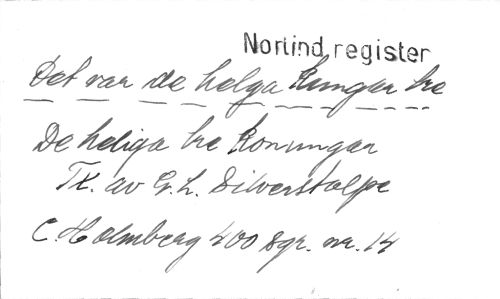 Norlind, register
Det var de helga kungar tre
De heliga tre konungar
Tx. av G. L. Silverstolpe
C. Holmberg 400 sgr. nr. 14